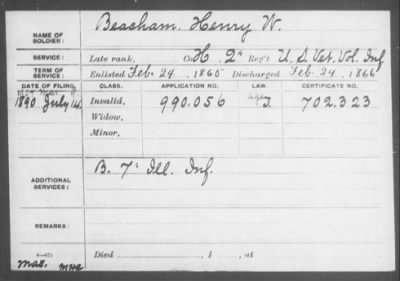 NAME OF SOLDIER: Beasham, Henry W.
SERVICE: Late rank, Co. H, 2" Reg't U. S. Vet. Vol. Inf
TERM OF SERVICE: Enlisted Feb. 24, 1865 Discharged Feb. 24, 1866
DATE OF FILING. CLASS. APPLICATION NO. LAW. CERTIFICATE NO.
1890 July 14. Invalid, 990.056 J. 702.323
Widow,
Minor,
ADDITIONAL SERVICES: B. 7" Ill. Inf.
REMARKS:
Died , 1 , at